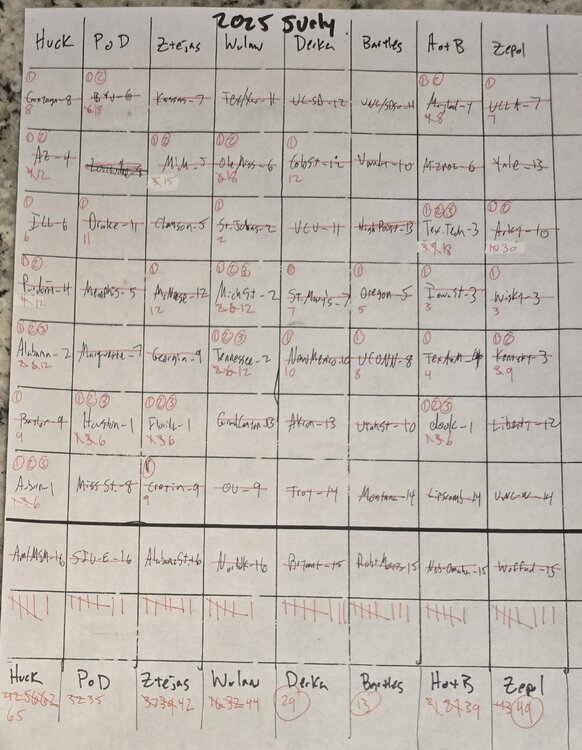 2025 Suely
Huck PoD Ztejas Wulaw Derka Bartles HotB Zepol
① ①② ①② ①
Gonzaga-8 BYU-6 Kansas-7 Tex/Xav-11 UC-SD-12 UNC/SDSU-11 Maryland-4 UCLA-7
8 6 18 4 8 7
①② ①② ①② ①
AZ-4 Louisville-8 Mich-5 Ole Miss-6 ColoSt-12 Vandy-10 Mizzou-6 Yale-13
4 12 5 15 6 18 12
① ① ① ①②③ ①②
ILL-6 Drake-11 Clemson-5 St. Johns-2 VCU-11 High Point-13 Tex. Tech-3 Ark-10
6 11 2 3 9 18 10 30
①② ① ①②③ ① ① ① ①
Purdue-4 Memphis-5 McNeese-12 Mich St-2 St. Mary's-7 Oregon-5 Iowa St-3 Wisky-3
4 12 12 2 6 12 7 5 3 3
①②③ ①②③ ① ① ① ①②
Alabama-2 Marquette-7 Georgia-9 Tennessee-2 New Mexico-10 UCONN-8 Tex A+M-4 Kentucky-3
2 6 12 2 6 12 10 8 4 3 9
① ①②③ ①②③ ①②③
Baylor-9 Houston-1 Florida-1 Grand Canyon-13 Akron-13 Utah St-10 dook-1 Liberty-12
9 1 3 6 1 3 6 1 3 6
①②③ ①
Auburn-1 Miss St.-8 Creighton-9 OU-9 Troy-14 Montana-14 Lipscomb-14 UNC-W-14
1 3 6 9
Am/MSM-16 SIU-E-16 Alabama St-16 Norfolk-16 Bryant-15 Rob Morris-15 Neb-Omaha-15 Wofford-15
Huck PoD Ztejas Wulaw Derka Bartles HotB Zepol
42 56 62 32 35 37 39 42 16 32 44 29 13 39 43 49
65